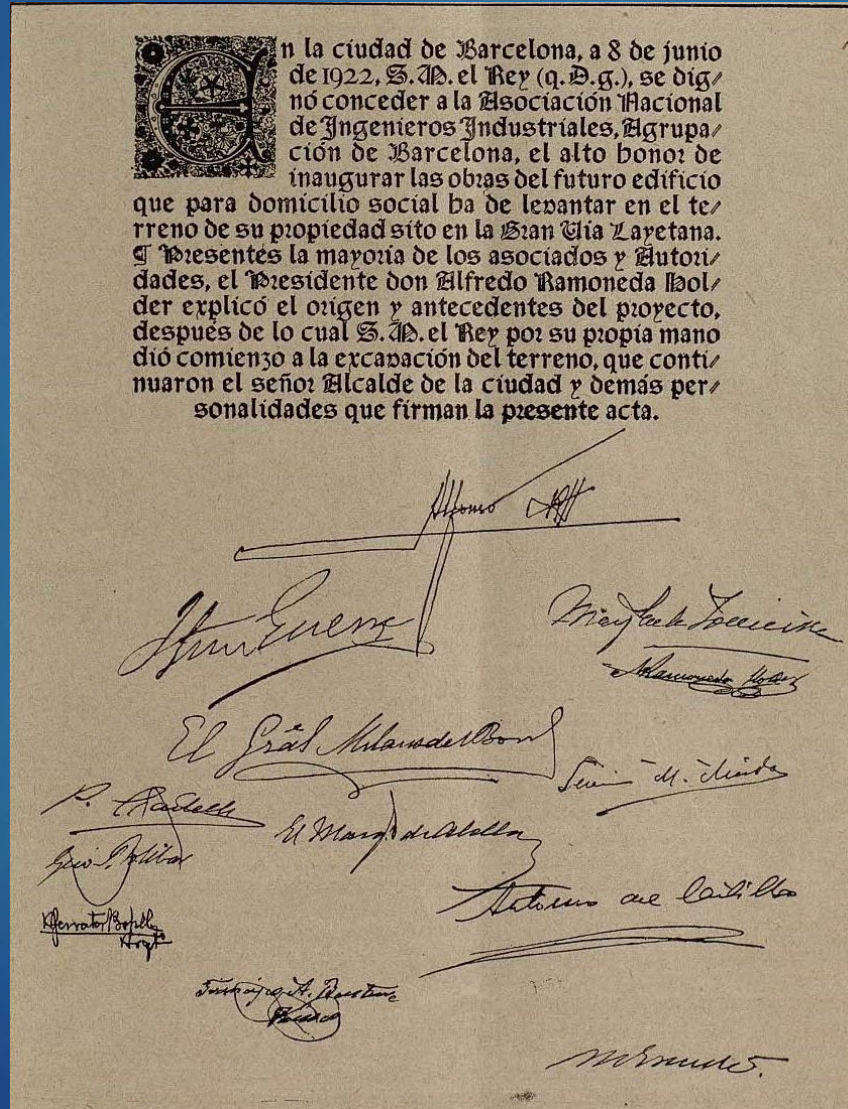 En la ciudad de Barcelona, a 8 de junio
de 1922, S.M. el Rey (q.D.g.), se dig-
nó conceder a la Asociación Nacional
de Ingenieros Industriales, Agrupa-
ción de Barcelona, el alto honor de
inaugurar las obras del futuro edificio
que para domicilio social ha de levantar en el te-
rreno de su propiedad sito en la Gran Vía Layetana.
¶ Presentes la mayoría de los asociados y Autori-
dades, el Presidente don Alfredo Ramoneda Hol-
der explicó el origen y antecedentes del proyecto,
después de lo cual S.M. el Rey por su propia mano
dió comienzo a la excavación del terreno, que conti-
nuaron el señor Alcalde de la ciudad y demás per-
sonalidades que firman la presente acta.
Alfonso
Ramoneda Holder
El Gral Milans del Bosch
El Marqs de Alella
Antonio